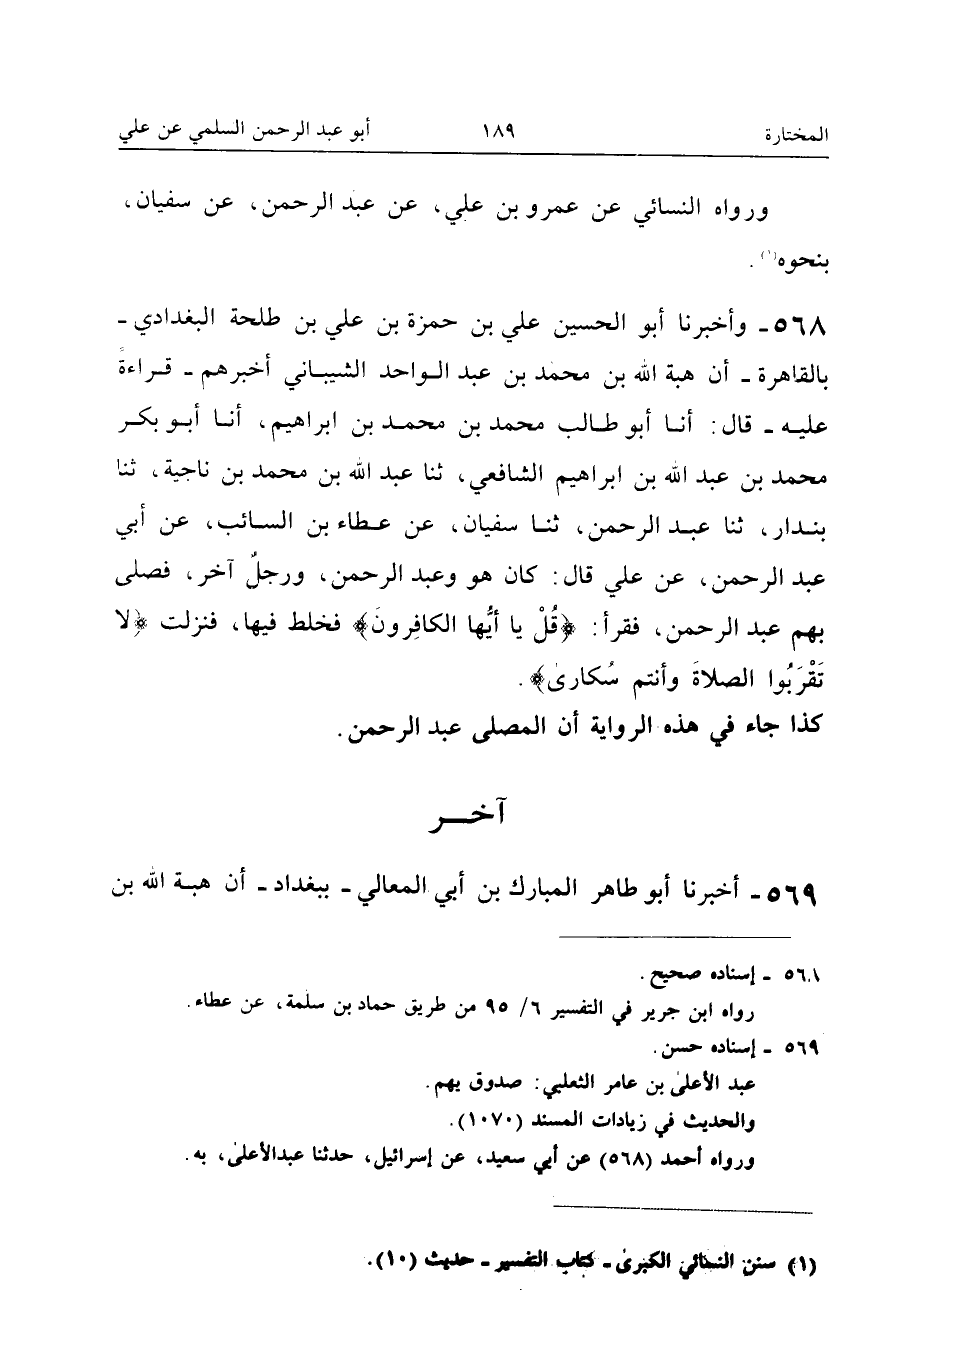 المختارة ١٨٩ أبو عبد الرحمن السلمي عن علي
ورواه النسائي عن عمرو بن علي، عن عبد الرحمن، عن سفيان،
بنحوه(١).
٥٦٨ـ وأخبرنا أبو الحسين علي بن حمزة بن علي بن طلحة البغدادي ـ
بالقاهرة ـ أن هبة الله بن محمد بن عبد الواحد الشيباني أخبرهم ـ قراءةً
عليه ـ قال: أنا أبو طالب محمد بن محمد بن ابراهيم، أنا أبو بكر
محمد بن عبد الله بن ابراهيم الشافعي، ثنا عبد الله بن محمد بن ناجية، ثنا
بندار، ثنا عبد الرحمن، ثنا سفيان، عن عطاء بن السائب، عن أبي
عبد الرحمن، عن علي قال: كان هو وعبد الرحمن، ورجلٌ آخر، فصلى
بهم عبد الرحمن، فقرأ: ﴿قُلْ يا أيُّها الكافِرونَ﴾ فخلط فيها، فنزلت ﴿لا
تَقْرَبُوا الصلاةَ وأنتم سُكارىٰ﴾.
كذا جاء في هذه الرواية أن المصلى عبد الرحمن.
آخـــر
٥٦٩ـ أخبرنا أبو طاهر المبارك بن أبي المعالي ـ ببغداد ـ أن هبة الله بن
٥٦٨ ـ إسناده صحيح.
رواه ابن جرير في التفسير ٦/ ٩٥ من طريق حماد بن سلمة، عن عطاء.
٥٦٩ ـ إسناده حسن.
عبد الأعلىٰ بن عامر الثعلبي: صدوق يهم.
والحديث في زيادات المسند (١٠٧٠).
ورواه أحمد (٥٦٨) عن أبي سعيد، عن إسرائيل، حدثنا عبدالأعلىٰ، به.
(١) سنن النسائي الكبرىٰ ـ كتاب التفسير ـ حديث (١٠).